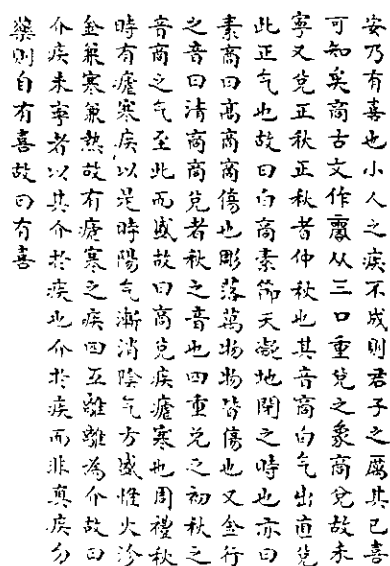 安乃有喜也小人之疾不成則君子之厲其已喜
可知矣商古文作𠾃从三口重兌之象商兌故未
寧又兌正秋正秋者仲秋也其音商白气出直兌
此正气也故曰白商素節天凝地閉之時也亦曰
素商曰高商商傷也彫落萬物物皆傷也又金行
之音曰清商商兌者秋之音也四重兌之初秋之
音商之气至此而盛故曰商兌疾瘧寒也周禮秋
時有瘧寒疾以是時陽气漸消陰气方盛惟火沴
金兼寒兼熱故有瘧寒之疾四互離離為介故曰
介疾未寧者以其介於疾也介於疾而非真疾勿
藥則自有喜故曰有喜